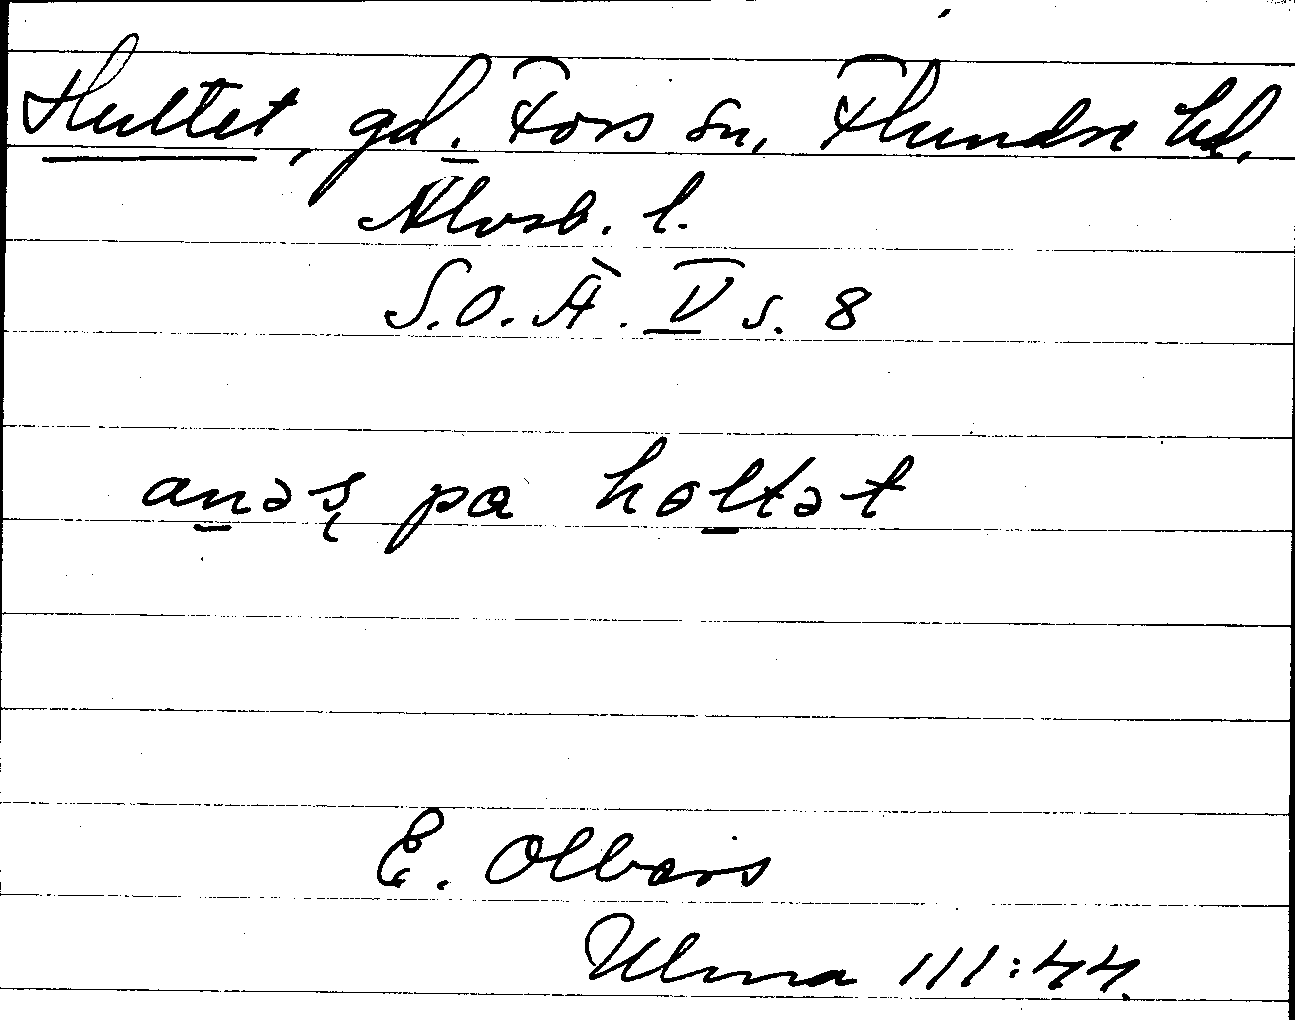 Hultet, gd. Fors sn, Flundre hd.
Älvsb. l.
S.O.Ä. V s. 8
anəş pa holtət
E. Olbers
Ulma 111:44.